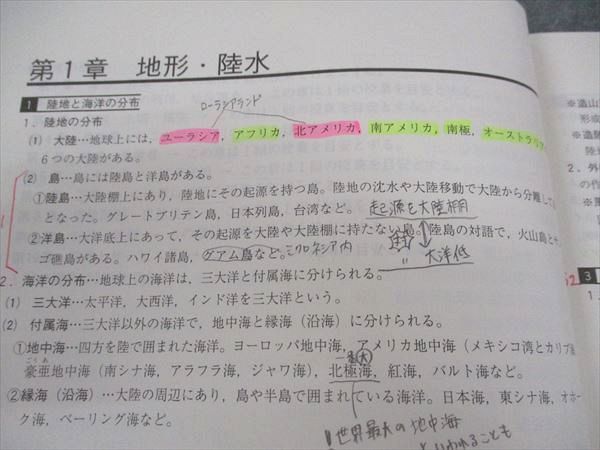 第1章 地形・陸水
1 陸地と海洋の分布
ローラシアランド
1. 陸地の分布
(1) 大陸…地球上には,ユーラシア,アフリカ,北アメリカ,南アメリカ,南極,オーストラリア
6つの大陸がある。
(2) 島…島には陸島と洋島がある。
①陸島…大陸棚上にあり,陸地にその起源を持つ島。陸地の沈水や大陸移動で大陸から分離し
となった。グレートブリテン島,日本列島,台湾など。 起源を大陸棚
②洋島…大洋底上にあって,その起源を大陸や大陸棚に持たない島。陸島の対語で,火山島と
ゴ礁島がある。ハワイ諸島,グアム島など。ミクロネシア内
〃 大洋低
2. 海洋の分布…地球上の海洋は,三大洋と付属海に分けられる。
(1) 三大洋…太平洋,大西洋,インド洋を三大洋という。
(2) 付属海…三大洋以外の海洋で,地中海と縁海(沿海)に分けられる。
①地中海…四方を陸で囲まれた海洋。ヨーロッパ地中海,アメリカ地中海(メキシコ湾とカリブ
一番大
ごうあ
豪亜地中海(南シナ海,アラフラ海,ジャワ海),北極海,紅海,バルト海など。
②縁海(沿海)…大陸の周辺にあり,島や半島で囲まれている海洋。日本海,東シナ海,オホー
ク海,ベーリング海など。
世界最大の地中海
といわれることも
※造山
形成
陸地
2. 外
※風
3
1.